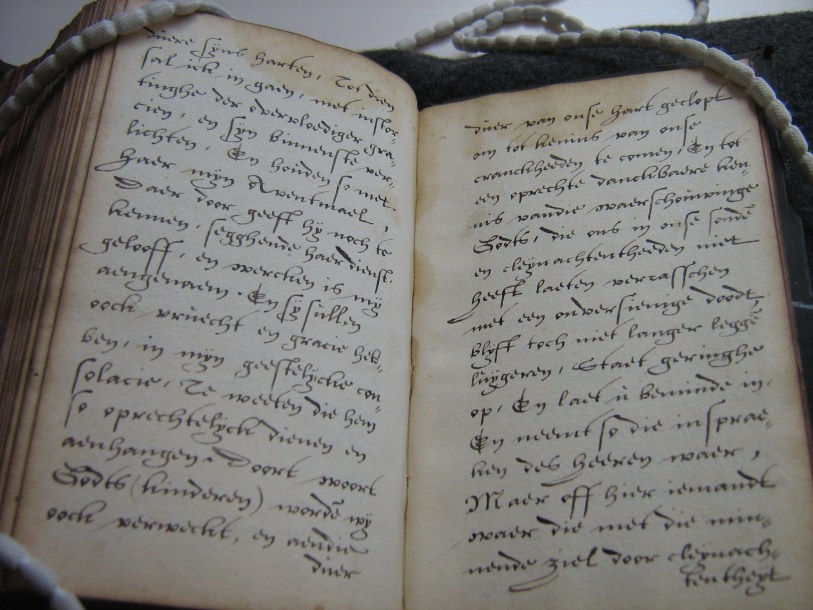 duere syns harten, Tot dien
sal ick in gaen, met instor-
tinghe der overvloediger gra-
cien, en syn binnenste ver-
lichten, En houden so met
haer myn Aventmael,
Daer door geeft hy noch te
kennen, segghende, haer dienst,
gelooff, en wercken is my
aengenaem. En sy sullen
oock vruecht en gracie heb-
ben, in myn geestelycke con-
solacie, Te weeten die hem
so oprechtelyck dienen en
aenhangen. Doort woort
Godts (kinderen) wordē wy
oock verweckt, en aendie
duer
duer van onse hart geclopt
om tot kennis van onse
cranckheeden te comen, En tot
een oprechte danckbaere ken-
nis vandie waerschouwinge
Godts, die ons in onse sondē
en cleynachtentheeden niet
heeft laeten verrasschen
met een onversienige doodt,
blyft toch niet langer leggē
luygeren, Staet geringhe
op, En laet u beminde in,
En neemt so die insprae-
ken des heeren waer,
Maer off hier iemandt
waer die met die min-
nende ziel door cleynach-
tentheyt